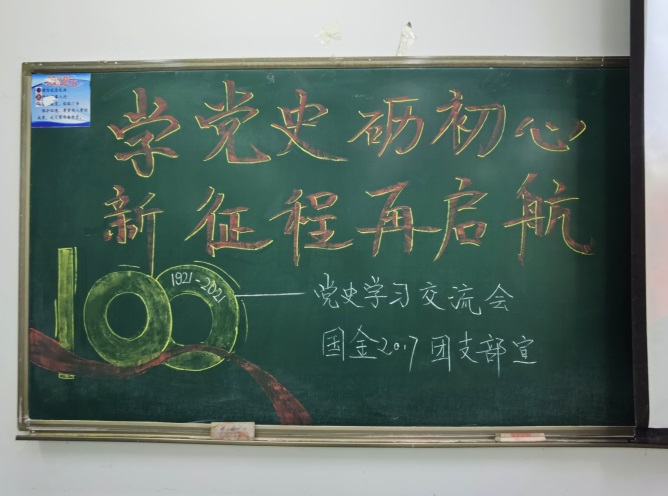 学党史砺初心
新征程再启航
100
1921-2021
党史学习交流会
国金2017团支部宣